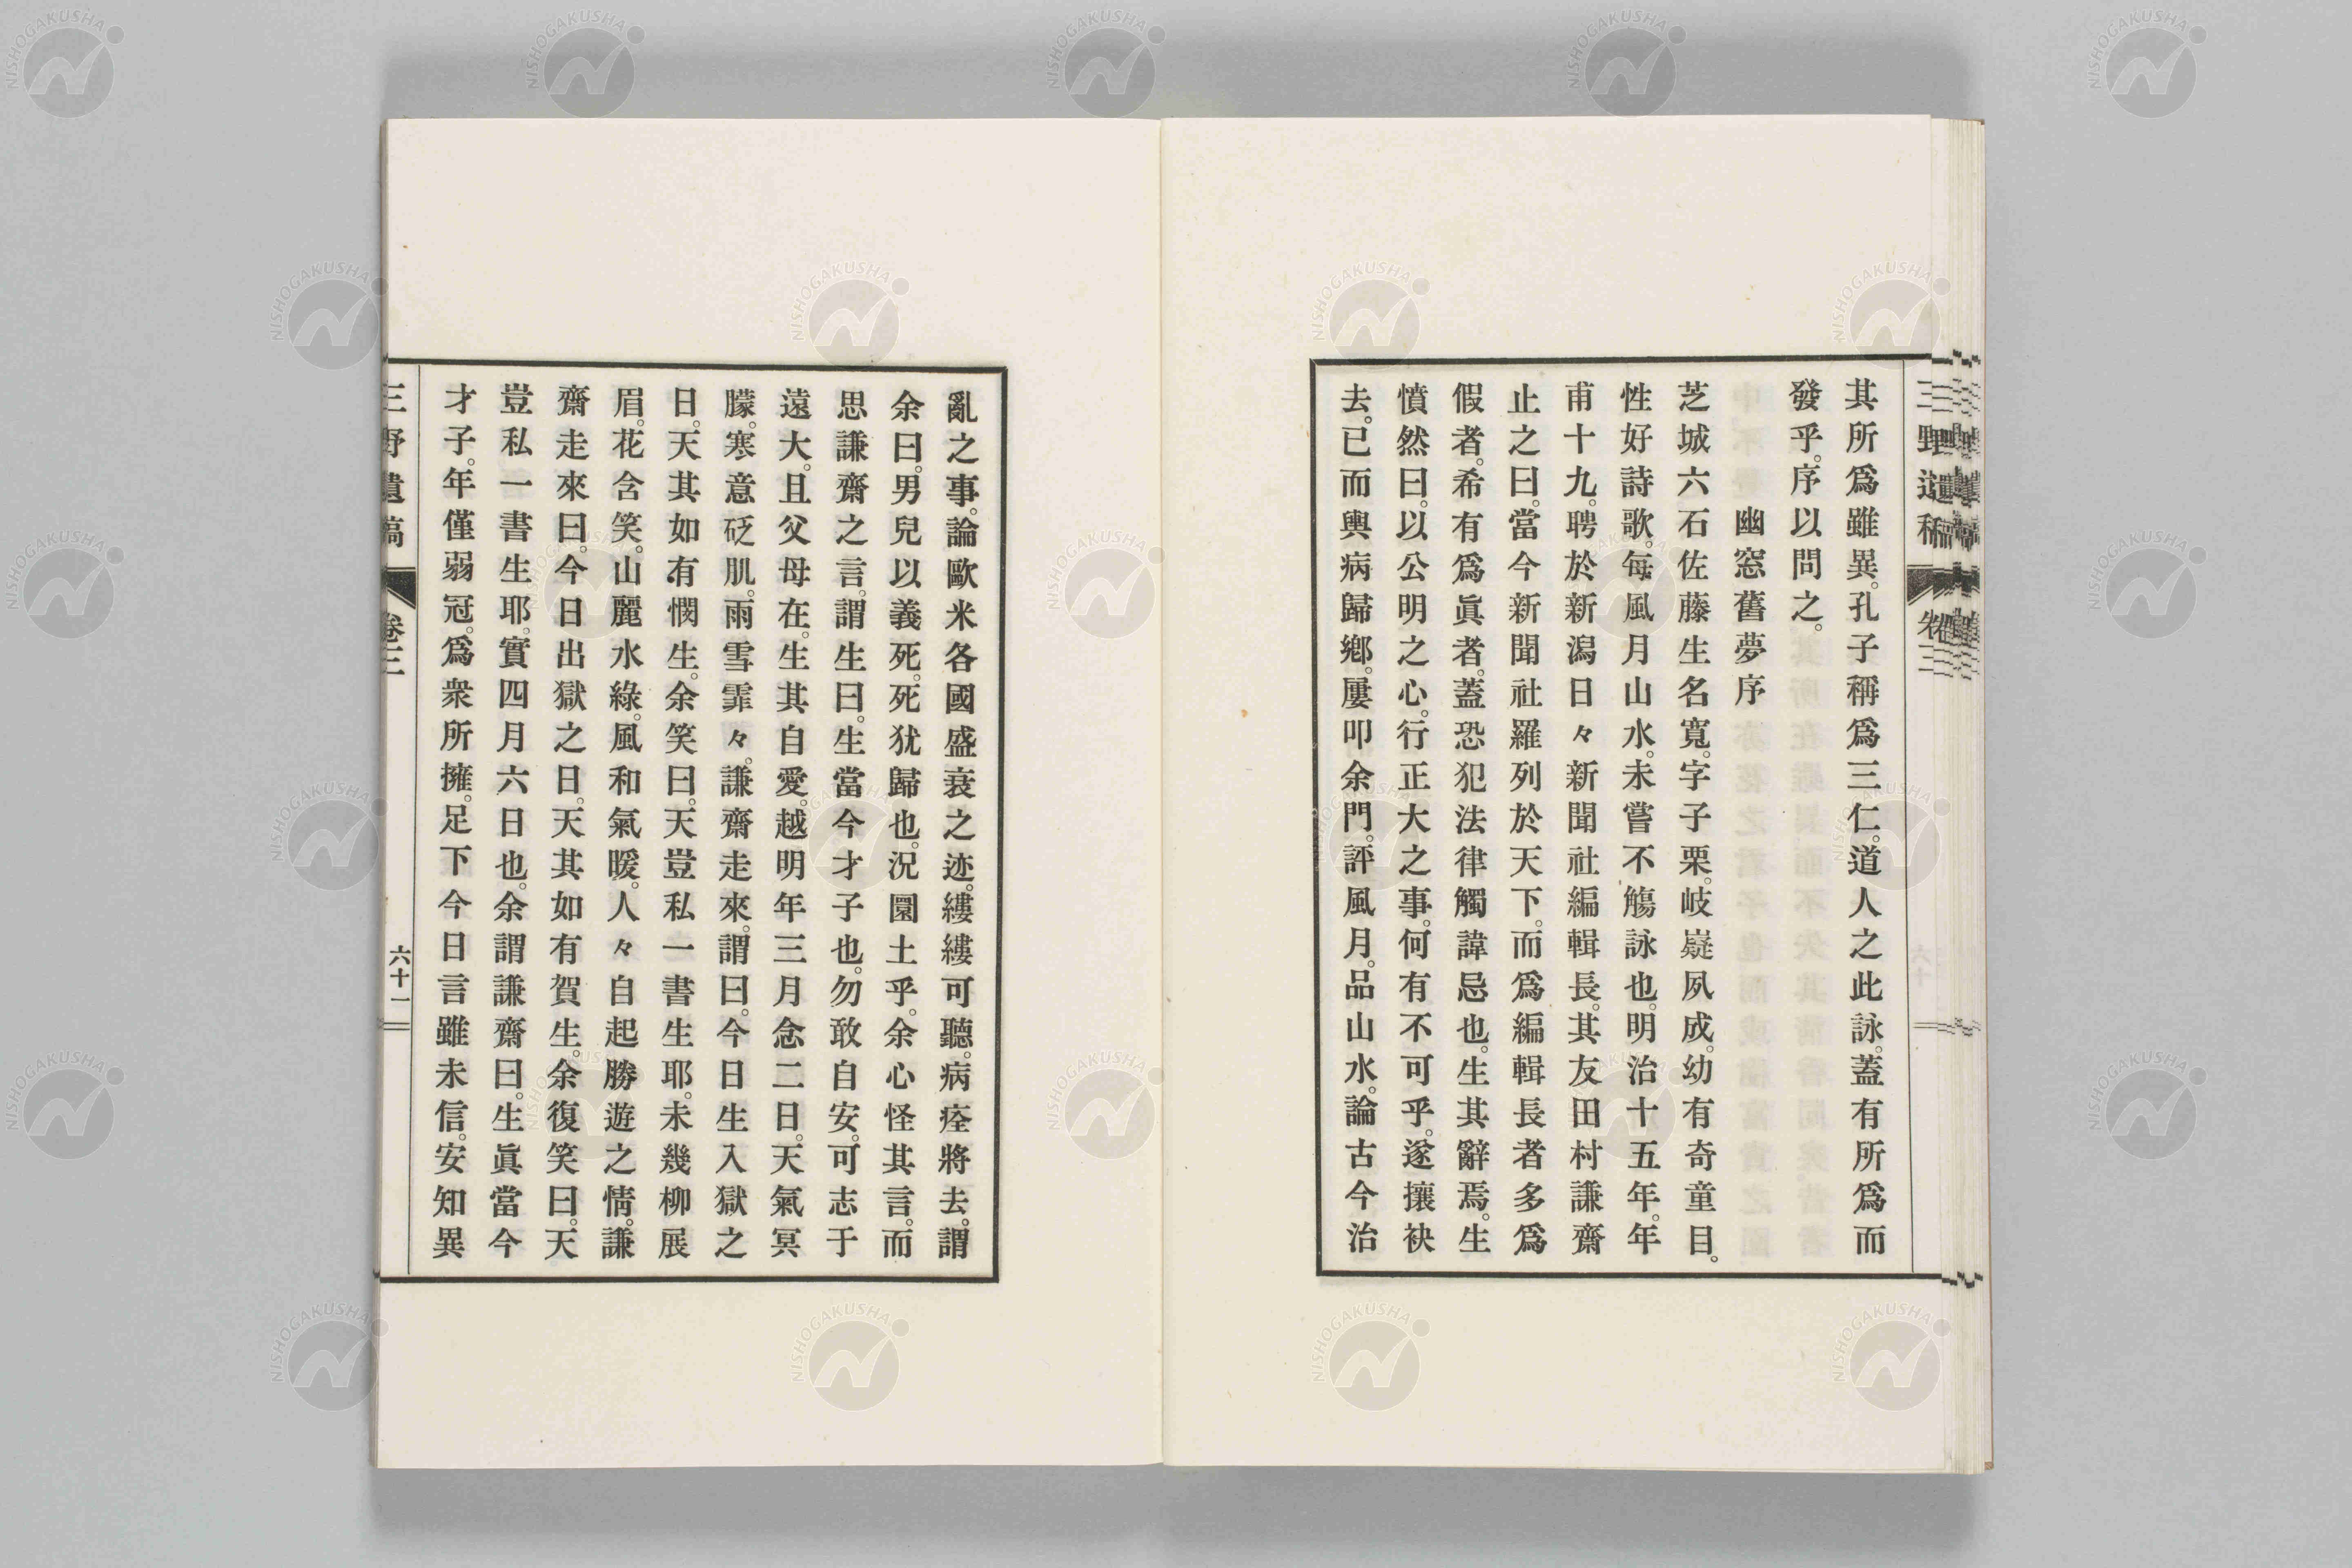 其所爲雖異。孔子稱爲三仁。道人之此詠。蓋有所爲而
發乎。序以問之。
幽窓舊夢序
芝城六石佐藤生名寬。字子栗。岐嶷夙成。幼有奇童目。
性好詩歌。每風月山水。未嘗不觴詠也。明治十五年。年
甫十九。聘於新潟日々新聞社編輯長。其友田村謙齋
止之曰。當今新聞社羅列於天下。而爲編輯長者多爲
假者。希有爲眞者。蓋恐犯法律觸諱忌也。生其辭焉。生
憤然曰。以公明之心。行正大之事。何有不可乎。遂攘袂
去。已而輿病歸鄕。屢叩余門。評風月。品山水。論古今治
亂之事。論歐米各國盛衰之迹。縷縷可聽。病痊將去。謂
余曰。男兒以義死。死犹歸也。況圜土乎。余心怪其言。而
思謙齋之言。謂生曰。生當今才子也。勿敢自安。可志于
遠大。且父母在。生其自愛。越明年三月念二日。天氣冥
朦。寒意砭肌。雨雪霏々。謙齋走來。謂曰。今日生入獄之
日。天其如有憫生。余笑曰。天豈私一書生耶。未幾柳展
眉。花含笑。山麗水綠。風和氣暖。人々自起勝遊之情。謙
齋走來曰。今日出獄之日。天其如有賀生。余復笑曰。天
豈私一書生耶。實四月六日也。余謂謙齋曰。生眞當今
才子。年僅弱冠。爲衆所擁。足下今日言雖未信。安知異
三野遺稿
卷三
六十一
NISHOGAKUSHA